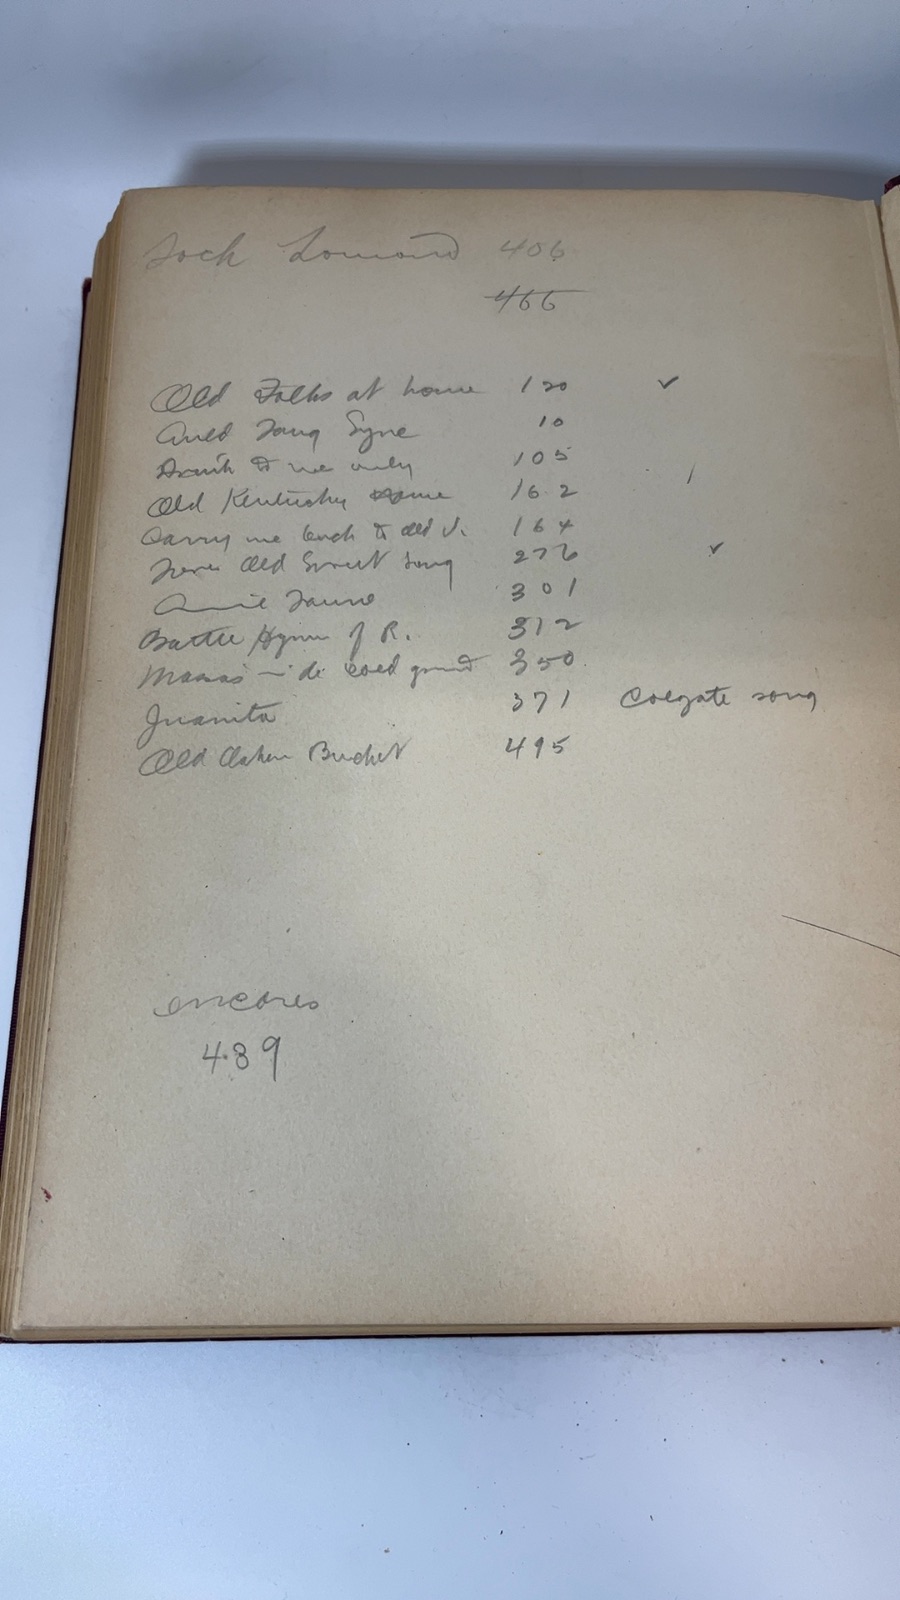 Loch Lomond 406
466
Old Folks at home 120 ✓
Auld Lang Syne 10
Drink to me only 105
Old Kentucky Home 162
Carry me back to old V. 164
Love's Old Sweet Song 276 ✓
Annie Laurie 301
Battle Hymn of R. 312
Massa's in de cold ground 350
Juanita 371 Colgate song
Old Oaken Bucket 495
encores
489